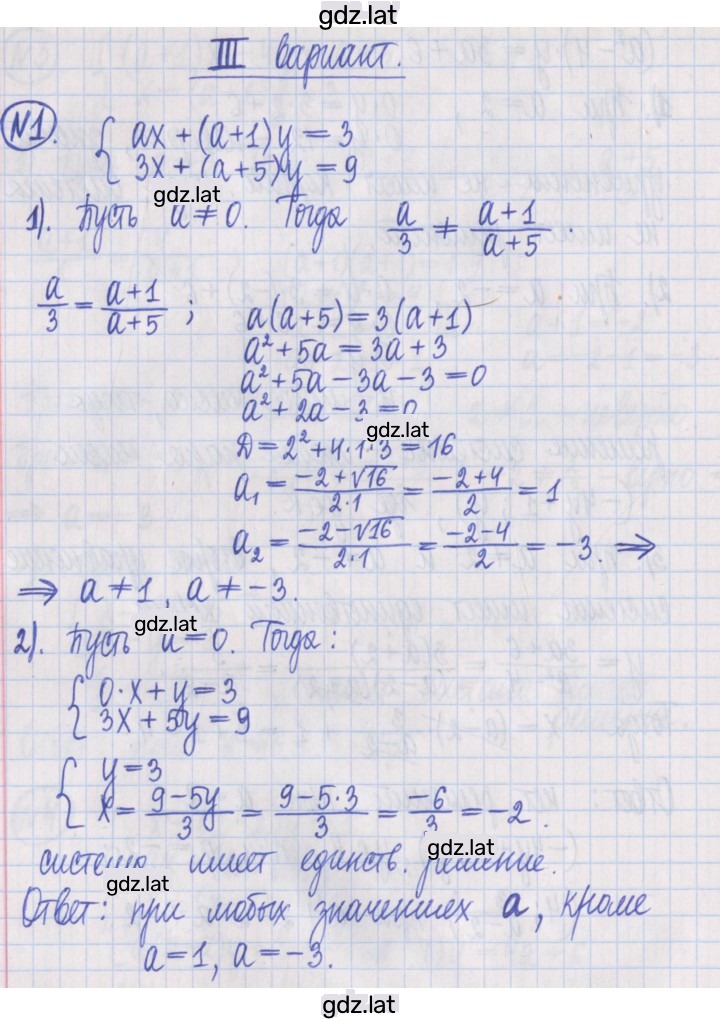 gdz.lat
III вариант.
№1. { ax + (a+1)y = 3
3x + (a+5)y = 9
gdz.lat
1). Пусть a ≠ 0. Тогда a/3 ≠ (a+1)/(a+5).
a/3 = (a+1)/(a+5) ; a(a+5) = 3(a+1)
a² + 5a = 3a + 3
a² + 5a − 3a − 3 = 0
a² + 2a − 3 = 0
gdz.lat
D = 2² + 4·1·3 = 16
a₁ = (−2+√16)/(2·1) = (−2+4)/2 = 1
a₂ = (−2−√16)/(2·1) = (−2−4)/2 = −3. ⇒
⇒ a ≠ 1, a ≠ −3.
gdz.lat
2). Пусть a = 0. Тогда:
{ 0·x + y = 3
3x + 5y = 9
{ y = 3
x = (9−5y)/3 = (9−5·3)/3 = −6/3 = −2.
система имеет единств. решение.
gdz.lat
gdz.lat
Ответ: при любых значениях a, кроме
a = 1, a = −3.
gdz.lat